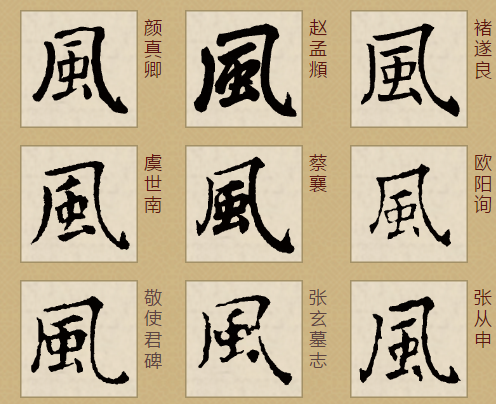 風 颜真卿
風 赵孟頫
風 褚遂良
風 虞世南
風 蔡襄
風 欧阳询
風 敬使君碑
風 张玄墓志
風 张从申